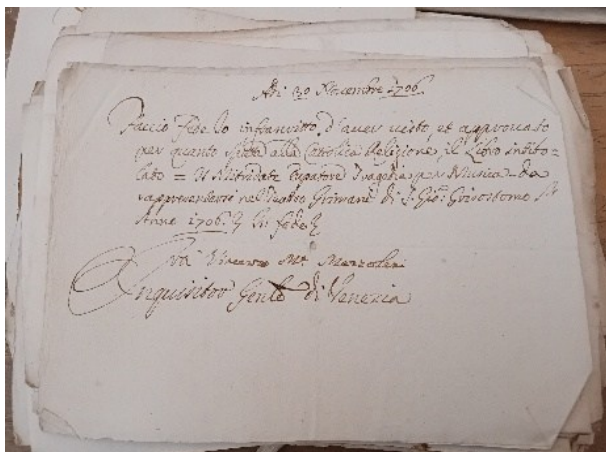 Adi 30 Novembre 1706
Faccio fede Io infrascritto, d'aver visto, et approvato
per quanto spetta alla Cattolica Religione, il Libro intito=
lato = Il Mitridate Eupatore Tragedia per Musica da
rappresentarsi nel Teatro Grimani di S. Gio: Grisostomo
Anno 1706. In fede
Fra Vincenzo Mª. Mazzoleni
Inquisitor Genle di Venezia